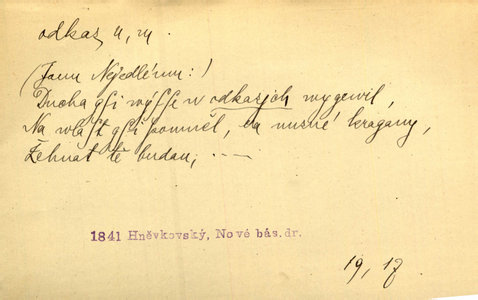 odkaz, u, m.
(Janu Nejedlému:)
Ducha gsi wýsse w odkazjch wygewil,
Na wlast gsi pomněl, na nusné kragany,
Žehnat tě budau, . — —
1841 Hněvkovský, Nové bás. dr.
19, 17